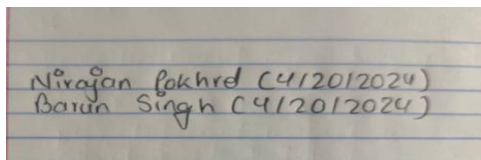 Nirajan Pokhrel (4/20/2024)
Barun Singh (4/20/2024)